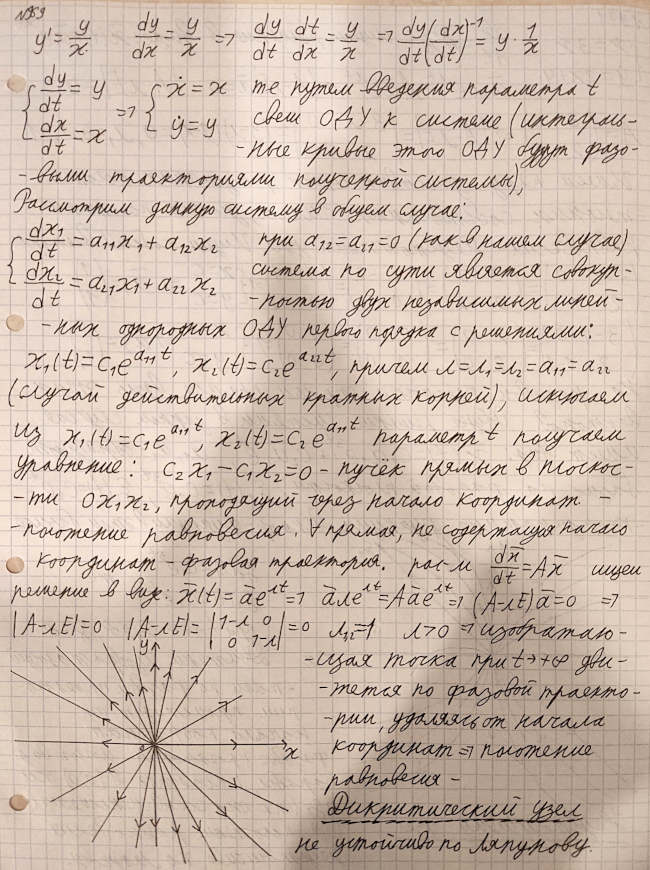 №969
y' = y/x dy/dx = y/x => dy/dt dt/dx = y/x => dy/dt (dx/dt)^-1 = y · 1/x
{ dy/dt = y => { ẋ = x те путем введения параметра t
dx/dt = x ẏ = y свели ОДУ к системе (интеграль-
-ные кривые этого ОДУ будут фазо-
-выми траекториями полученной системы),
Рассмотрим данную систему в общем случае:
{ dx₁/dt = a₁₁x₁ + a₁₂x₂ при a₁₂=a₂₁=0 (как в нашем случае)
dx₂/dt = a₂₁x₁ + a₂₂x₂ система по сути является совокуп-
-ностью двух независимых линей-
-ных однородных ОДУ первого порядка с решениями:
x₁(t) = c₁e^(a₁₁t), x₂(t) = c₂e^(a₂₂t), причем λ=λ₁=λ₂=a₁₁=a₂₂
(случай действительных кратных корней), исключаем
из x₁(t) = c₁e^(a₁₁t), x₂(t) = c₂e^(a₁₁t) параметр t получаем
уравнение: c₂x₁ - c₁x₂ = 0 - пучёк прямых в плоскос-
-ти Ox₁x₂, проходящий через начало координат -
- положение равновесия. ∀ прямая, не содержащая начало
координат - фазовая траектория. рас-м dx̄/dt = Ax̄ ищем
решение в виде: x̄(t) = āe^(λt) => āλe^(λt) = Aāe^(λt) => (A-λE)ā = 0 =>
|A-λE| = 0 |A-λE| = |1-λ 0| = 0 λ₁,₂=1 λ>0 => изобража­ю-
|0 1-λ|
y -щая точка при t→+∞ дви-
-жется по фазовой траекто-
-рии, удаляясь от начала
0 x координат => положение
равновесия -
Дикритический узел
не устойчиво по Ляпунову.